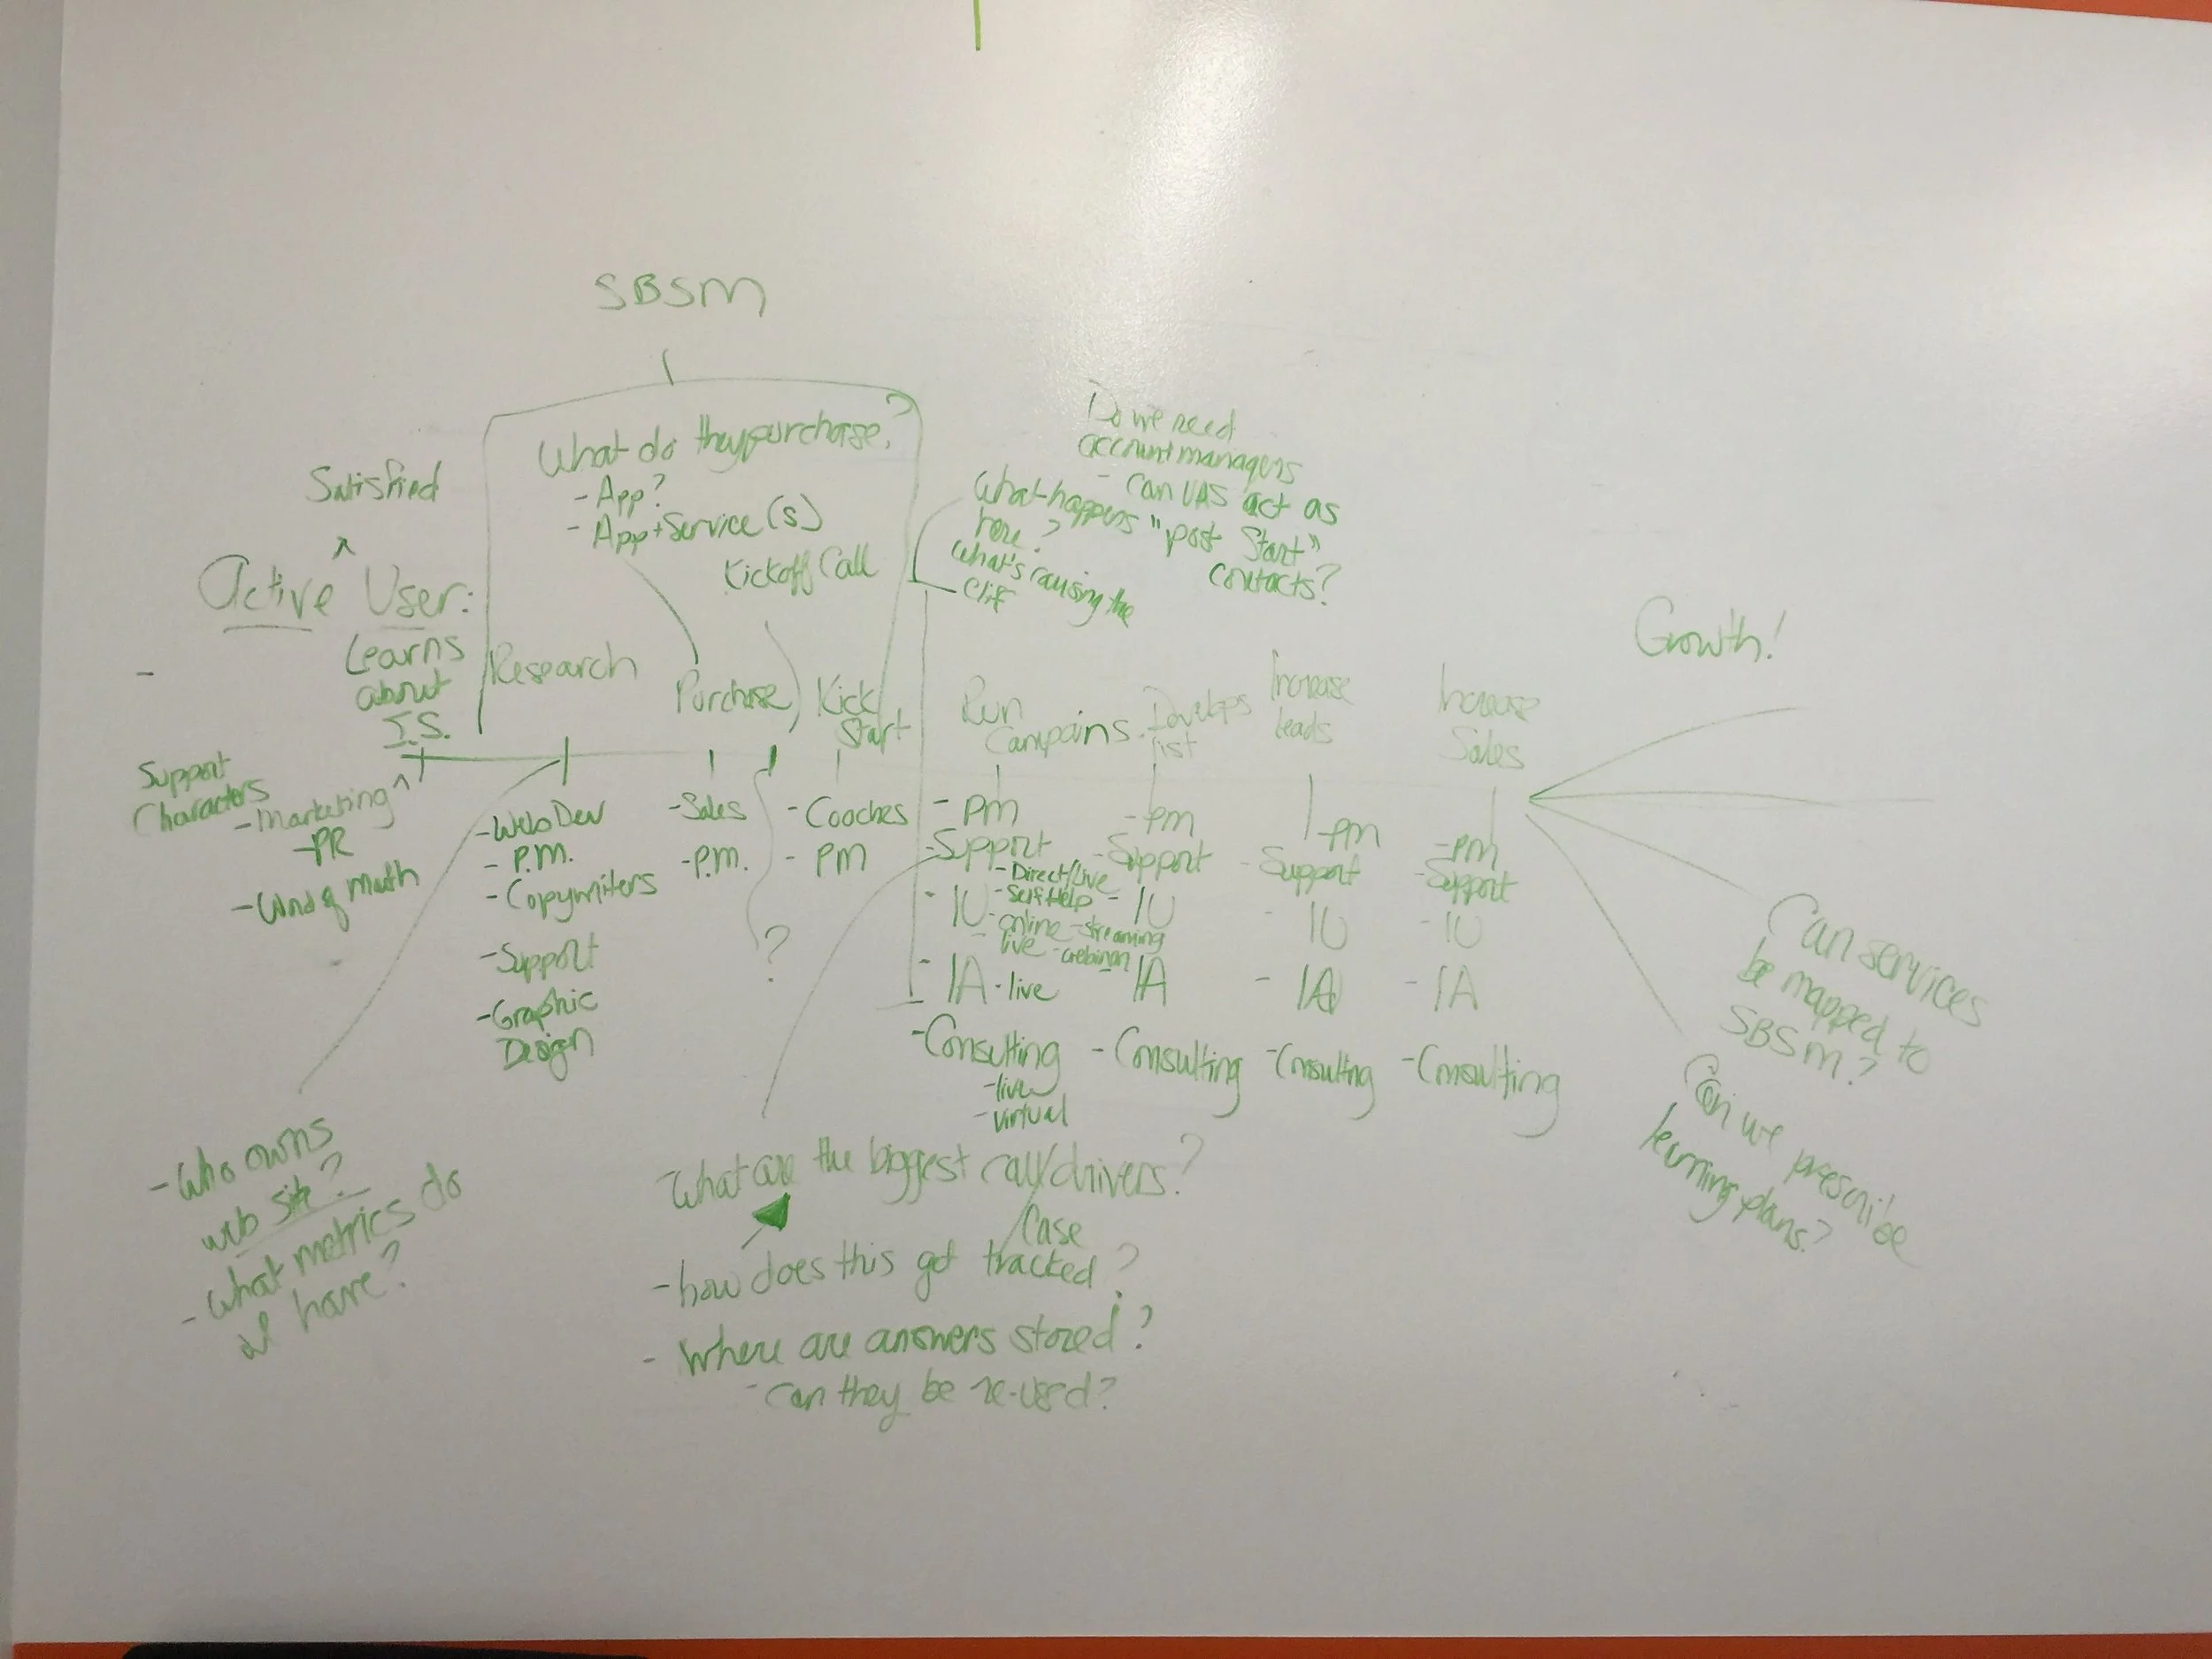 SBSM
What do they purchase?
- App?
- App + Service(s)
Kickoff Call
Do we need
account managers
- Can VAS act as
"post Start"
contacts?
What happens
here?
What's causing the
Clif
Satisfied
^
Active User:
Learns
about
I.S.
Research
Purchase
Kick
Start
Run
Campains
Develops
list
Increase
leads
Increase
Sales
Growth!
Support
Characters
- Marketing ^
- PR
- Word of Mouth
- Web Dev
- P.M.
- Copywriters
- Support
- Graphic
Design
- Sales
- P.M.
?
- Coaches
- PM
- PM
- Support
- Direct/Live
- Self Help
- IU
- online - streaming
- live - webinar
- IA - live
- Consulting
- live
- virtual
- PM
- Support
- IU
IA
- Consulting
- PM
- Support
- IU
- IA
- Consulting
- PM
- Support
- IU
- IA
- Consulting
- Who owns
web site?
- What metrics do
have?
- What are the biggest call/drivers?
Case
- how does this get tracked?
- Where are answers stored?
- can they be re-used?
Can services
be mapped to
SBSM?
Can we prescribe
learning plans?